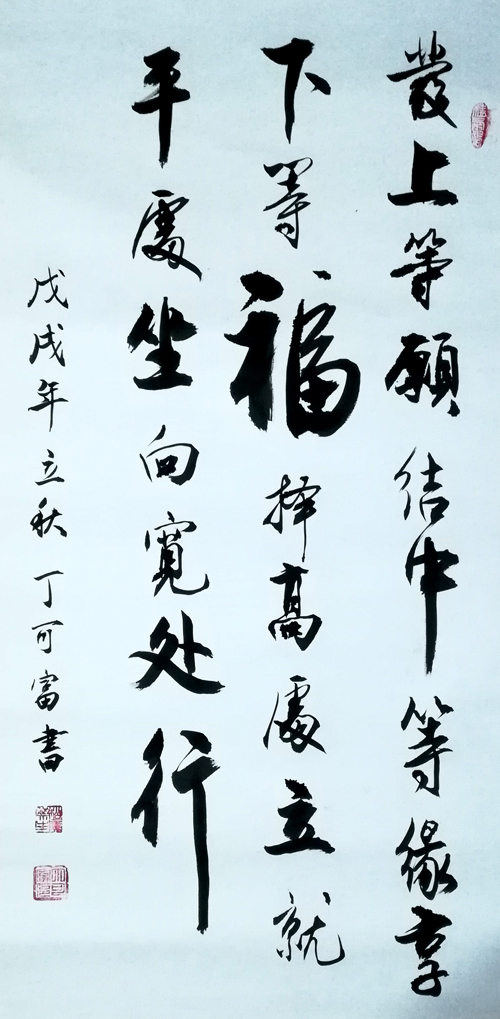 發上等願结中等緣享
下等福择高處立就
平處坐向寬处行
戊戌年立秋丁可富書